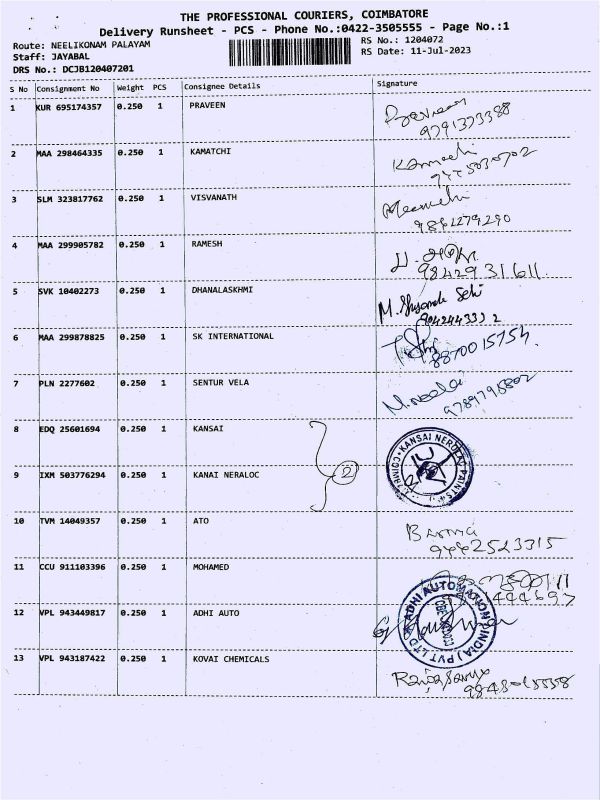 THE PROFESSIONAL COURIERS, COIMBATORE
Delivery Runsheet - PCS - Phone No.:0422-3505555 - Page No.:1
Route: NEELIKONAM PALAYAM RS No.: 1204072
Staff: JAYABAL RS Date: 11-Jul-2023
DRS No.: DCJB120407201
S No Consignment No Weight PCS Consignee Details Signature
1 KUR 695174357 0.250 1 PRAVEEN Praveen
9791373388
2 MAA 298464335 0.250 1 KAMATCHI
3 SLM 323817762 0.250 1 VISVANATH
9841279290
4 MAA 299905782 0.250 1 RAMESH
9842931611
5 SVK 10402273 0.250 1 DHANALASKHMI M.
6 MAA 299878825 0.250 1 SK INTERNATIONAL
8870015754
7 PLN 2277602 0.250 1 SENTUR VELA
9789795802
8 EDQ 25601694 0.250 1 KANSAI KANSAI NEROLAC PAINTS
9 IXM 503776294 0.250 1 KANAI NERALOC 2
10 TVM 14049357 0.250 1 ATO
9442523315
11 CCU 911103396 0.250 1 MOHAMED
12 VPL 943449817 0.250 1 ADHI AUTO ADHI AUTOMATION (INDIA) PVT LTD
13 VPL 943187422 0.250 1 KOVAI CHEMICALS